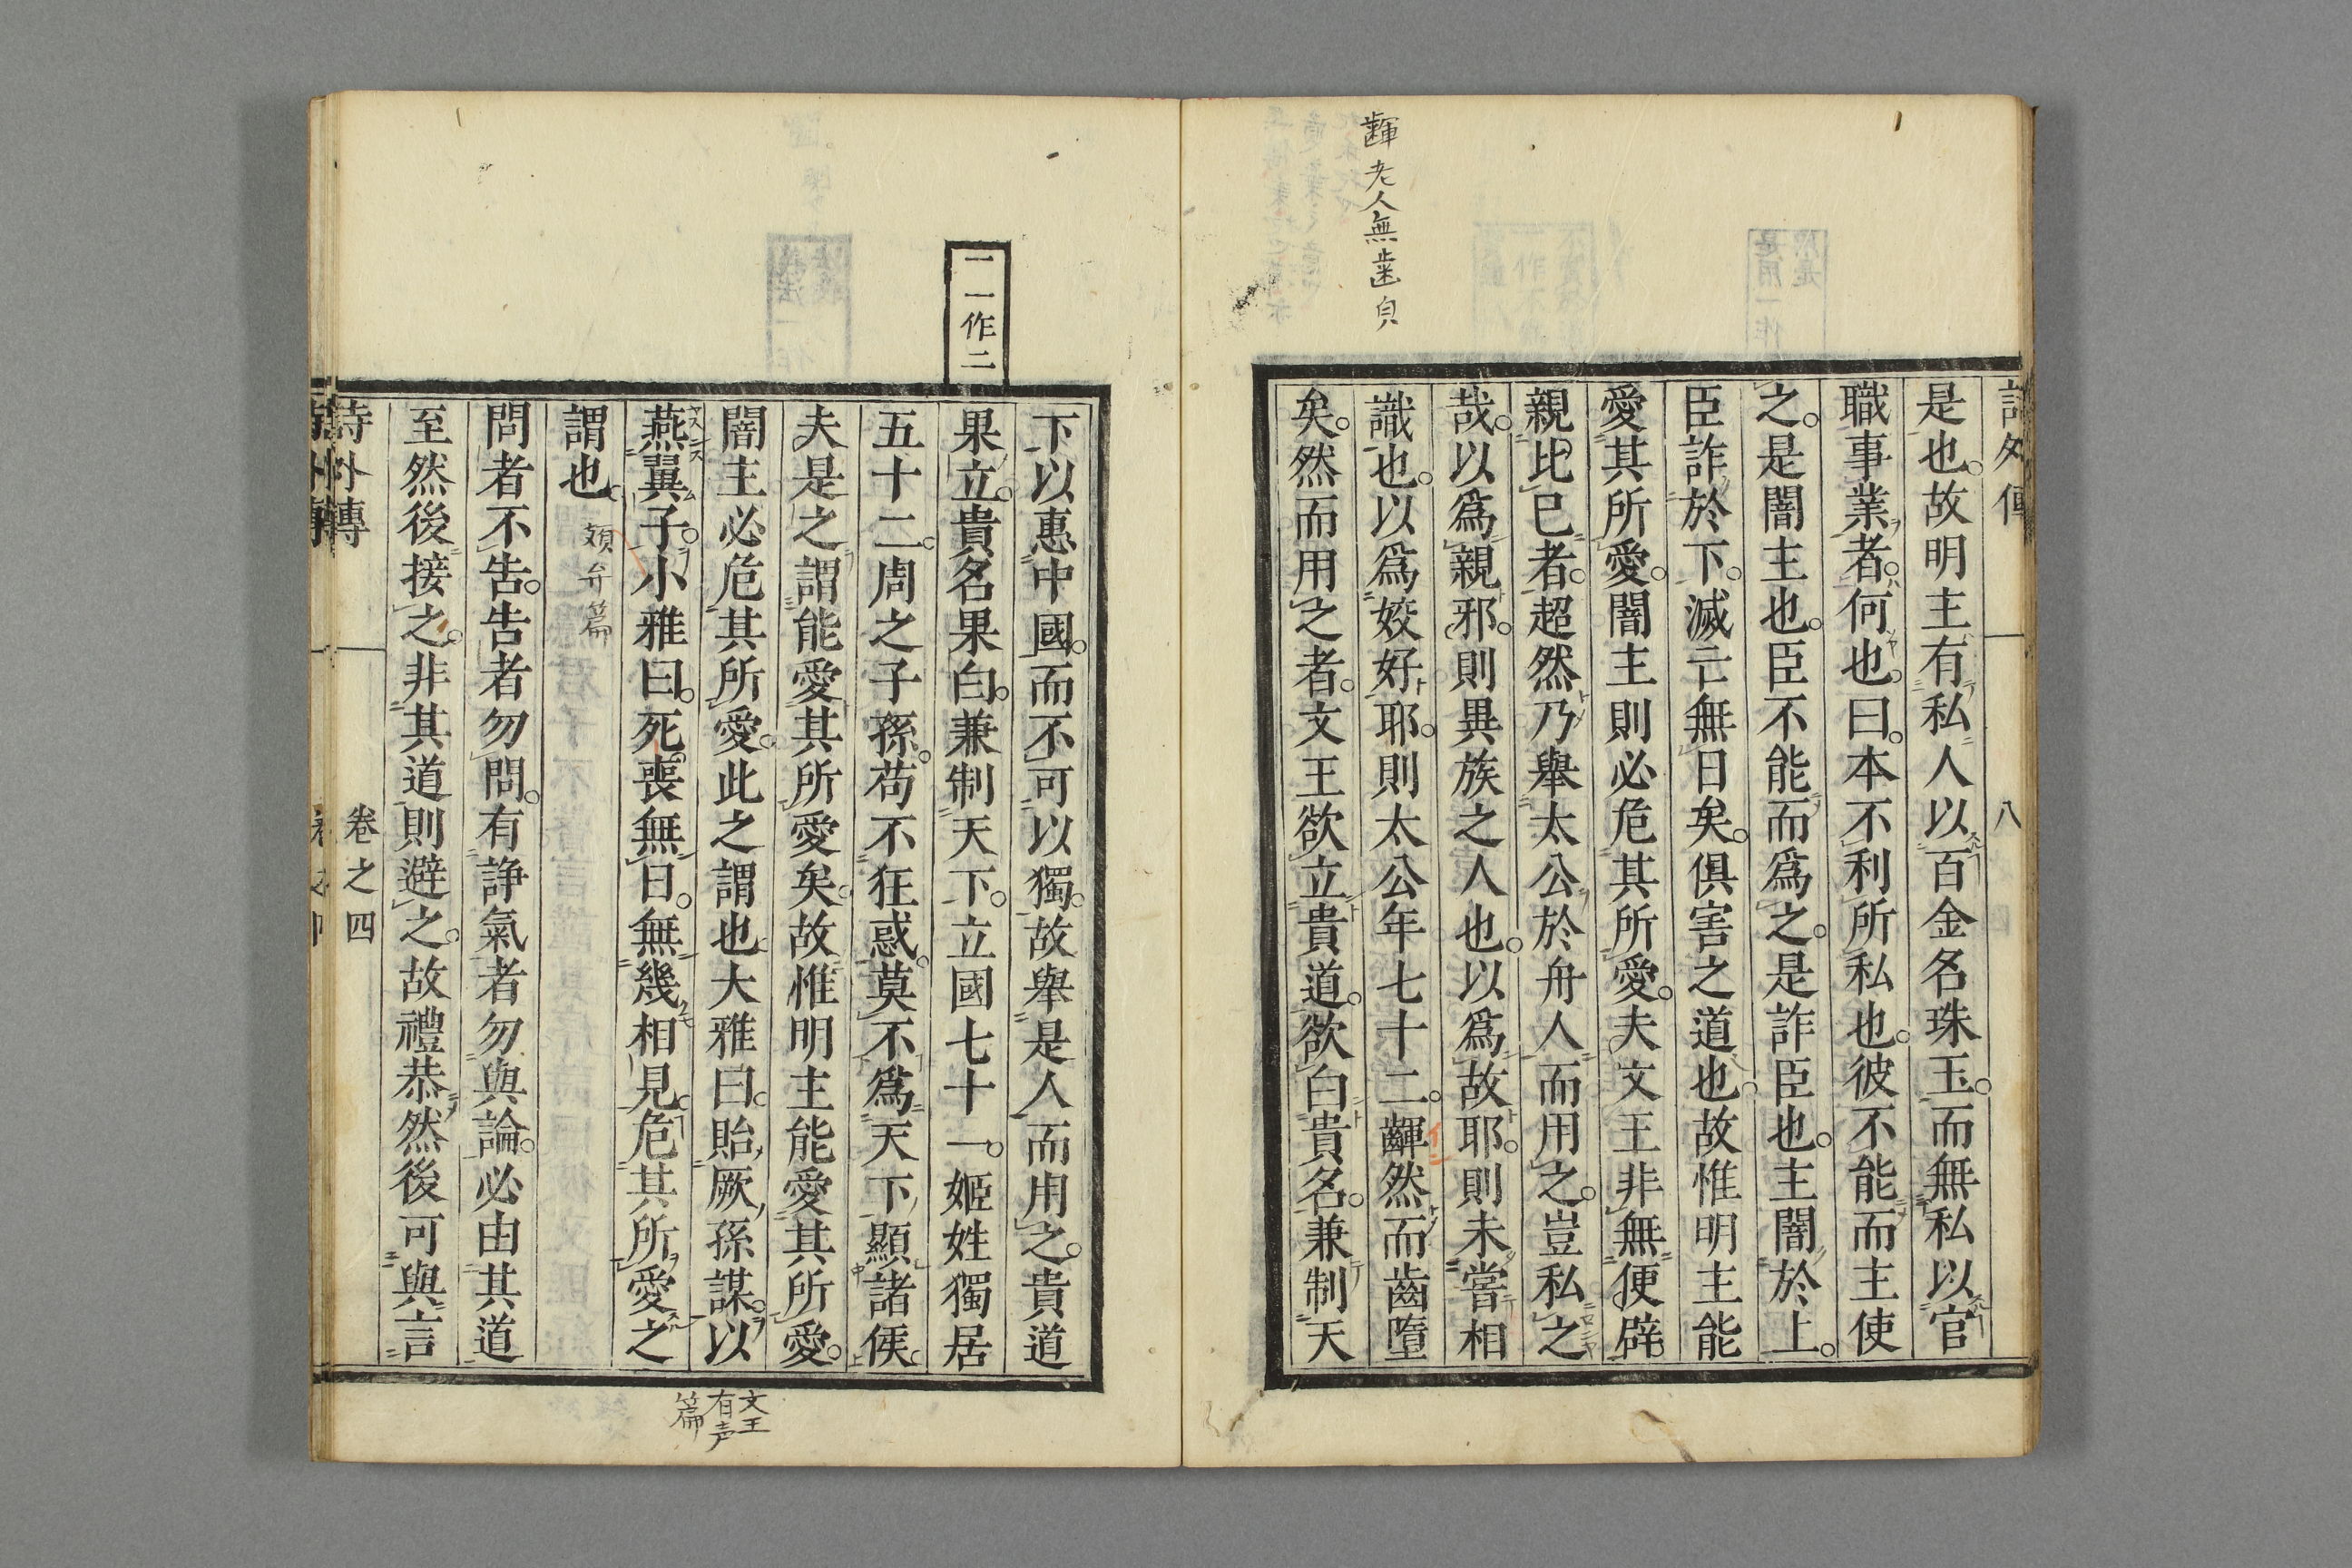 齳老人無歯皃
詩外傳
八
是也。故明主有私人以百金名珠玉。而無私以官
職事業者。何也。曰。本不利所私也。彼不能而主使
之。是闇主也。臣不能而爲之。是詐臣也。主闇於上。
臣詐於下。滅亡無日矣。俱害之道也。故惟明主能
愛其所愛。闇主則必危其所愛。夫文王非無便辟
親比已者。超然乃舉太公於舟人而用之。豈私之
哉。以爲親邪。則異族之人也。以爲故耶。則未嘗相
識也。以爲姣好耶。則太公年七十二。齳然而齒墮
矣。然而用之者。文王欲立貴道。欲白貴名。兼制天
一一作二
下以惠中國。而不可以獨。故舉是人而用之。貴道
果立。貴名果白。兼制天下。立國七十一。姬姓獨居
五十二。周之子孫。苟不狂惑。莫不爲天下顯諸侯。
夫是之謂能愛其所愛矣。故惟明主能愛其所愛。
闇主必危其所愛。此之謂也。大雅曰。貽厥孫謀。以
燕翼子。小雅曰。死喪無日。無幾相見。危其所愛之
謂也。
頍弁篇
文王
有声
篇
問者不告。告者勿問。有諍氣者勿與論。必由其道
至然後接之。非其道則避之。故禮恭然後可與言
詩外傳
卷之四